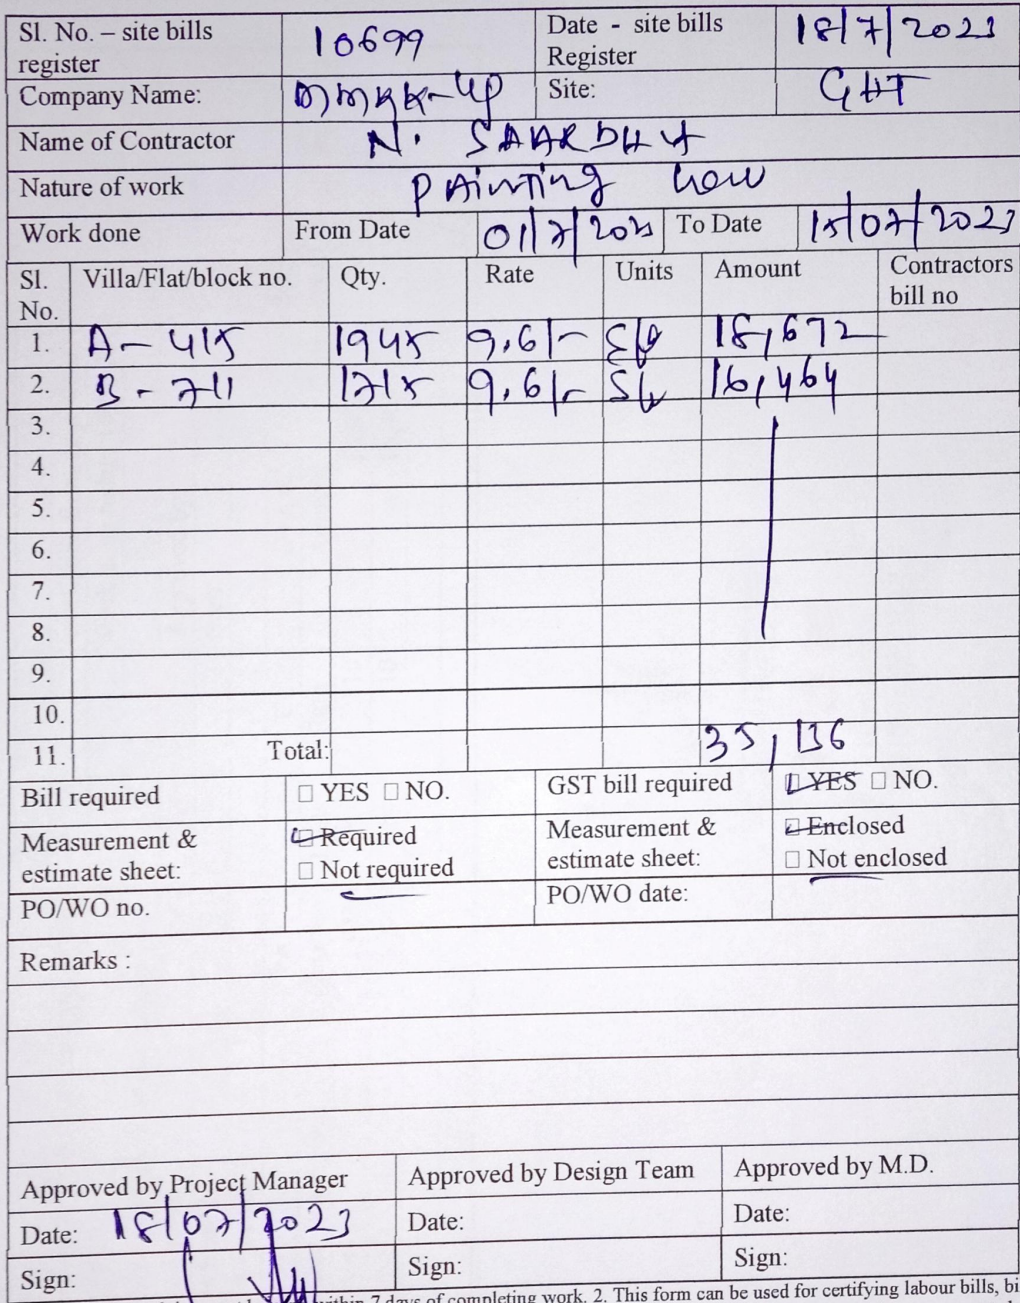 Sl. No. – site bills register 10699 Date - site bills Register 18/7/2023
Company Name: Site: GHT
Name of Contractor N.
Nature of work Painting
Work done From Date 01/7/2023 To Date 15/07/2023
Sl. No. Villa/Flat/block no. Qty. Rate Units Amount Contractors bill no
1. A- 415 1945 9.6/- Sft 18,672
2. B - 711 1715 9.6/- Sft 16,464
3.
4.
5.
6.
7.
8.
9.
10.
11. Total: 35,136
Bill required □ YES □ NO. GST bill required □ YES □ NO.
Measurement & estimate sheet: □ Required Measurement & estimate sheet: □ Enclosed
□ Not required □ Not enclosed
PO/WO no. PO/WO date:
Remarks :
Approved by Project Manager Approved by Design Team Approved by M.D.
Date: 18/07/2023 Date: Date:
Sign: Sign: Sign:
within 7 days of completing work. 2. This form can be used for certifying labour bills, bi